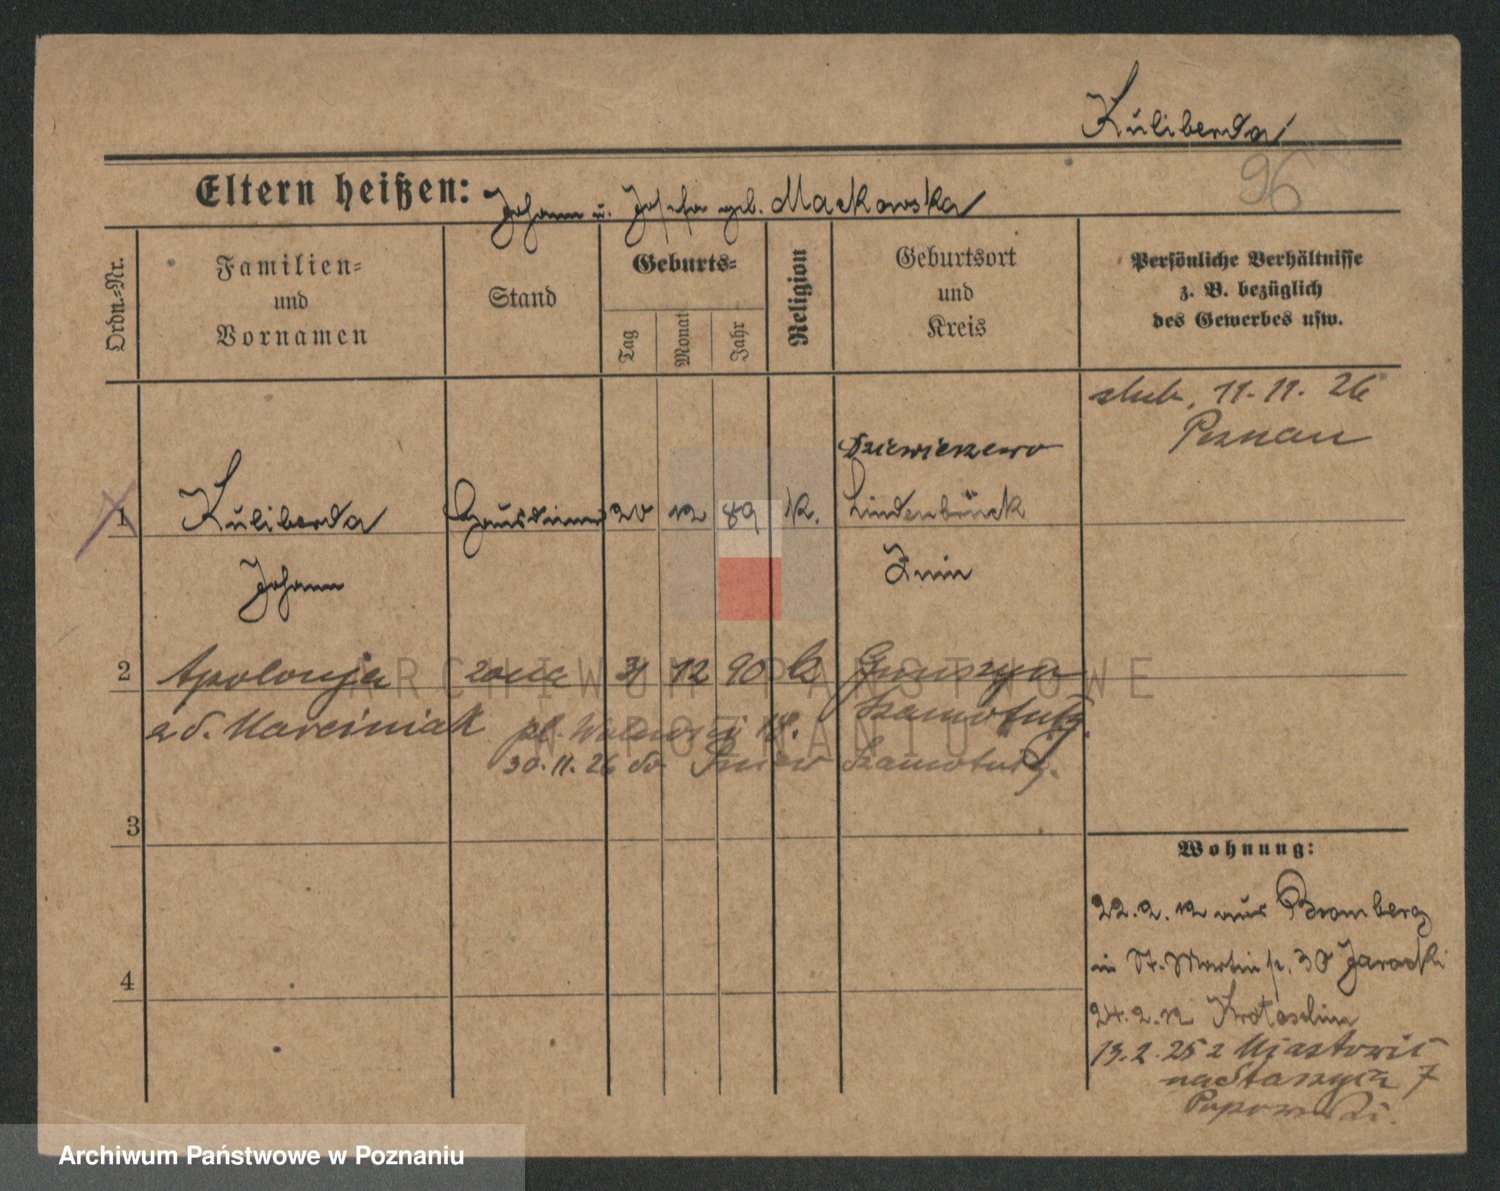 Kuliberda
96
Eltern heißen: Johann u. Josefa geb. Mackowska
Ordn.-Nr.
Familien-
und
Vornamen
Stand
Geburts-
Tag
Monat
Jahr
Religion
Geburtsort
und
Kreis
Persönliche Verhältnisse
z. B. bezüglich
des Gewerbes usw.
ślub. 11.11.26
Poznań
Dziewierzewo
1 Kuliberda Hausdiener 20 12 89 K. Lindenbrück
Johann Znin
2 Apolonja żona 31 12 90 k
a d. Marciniak pl. 18. Szamotuły.
30.11.26 do Pniew Szamotuły.
3
4
Wohnung:
22.2.12 aus Bromberg
in St. Martinstr. 30
24.2.12 Krotoschin
13.2.25 z
na Staszyca 7
ARCHIWUM PAŃSTWOWE
W POZNANIU
Archiwum Państwowe w Poznaniu